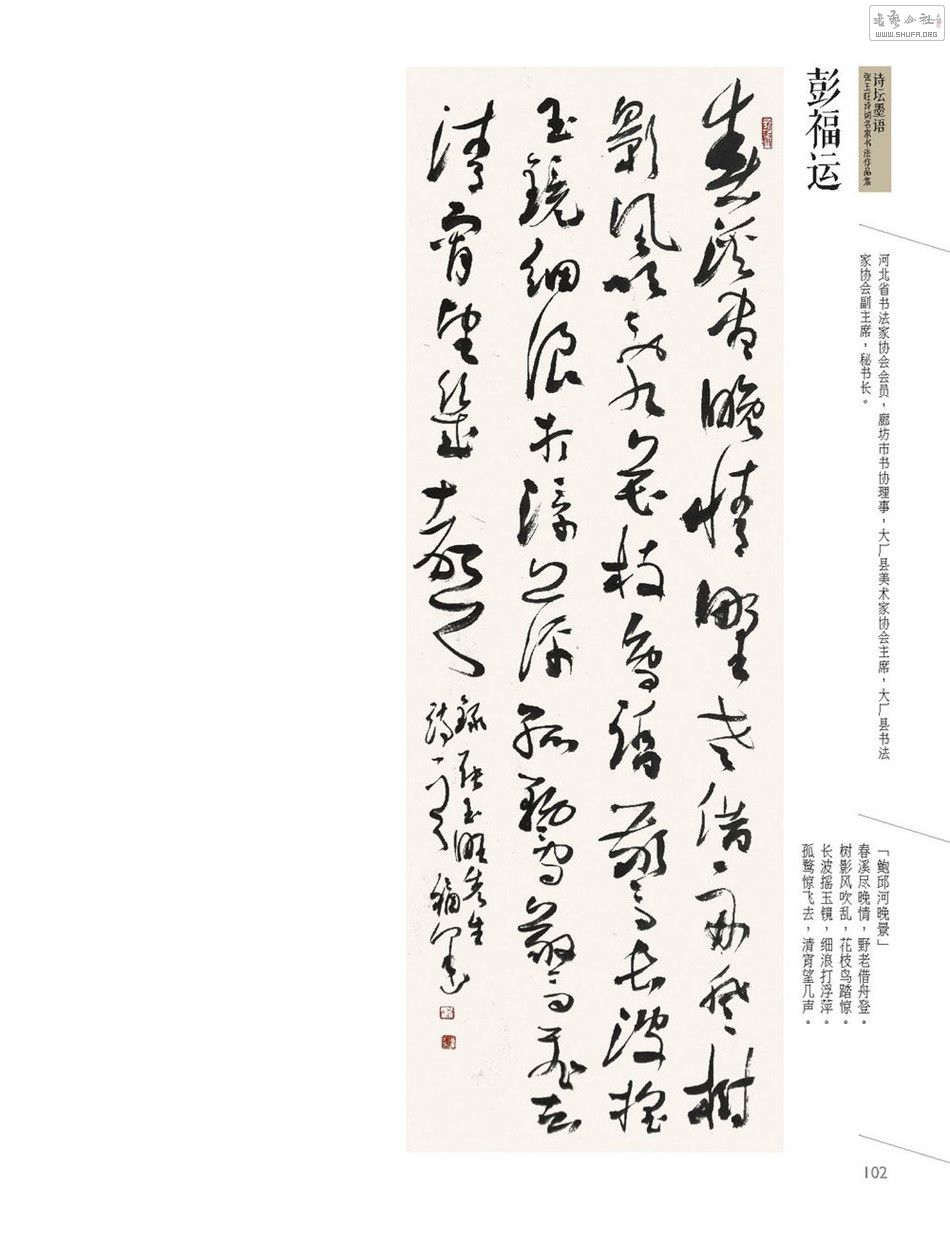 书艺公社
WWW.SHUFA.ORG
诗坛墨语
张玉旺诗词名家书法作品集
彭福运
河北省书法家协会会员，廊坊市书协理事，大厂县美术家协会主席，大厂县书法
家协会副主席，秘书长。
「鲍邱河晚景」
春溪尽晚情，野老借舟登。
树影风吹乱，花枝鸟踏惊。
长波摇玉镜，细浪打浮萍。
孤鹜惊飞去，清宵望几声。
春溪尽晚情野老借舟登树
影风吹乱花枝鸟踏惊长波摇
玉镜细浪打浮萍孤鹜惊飞去
清宵望几声
录张玉旺先生
诗一首 福运
102